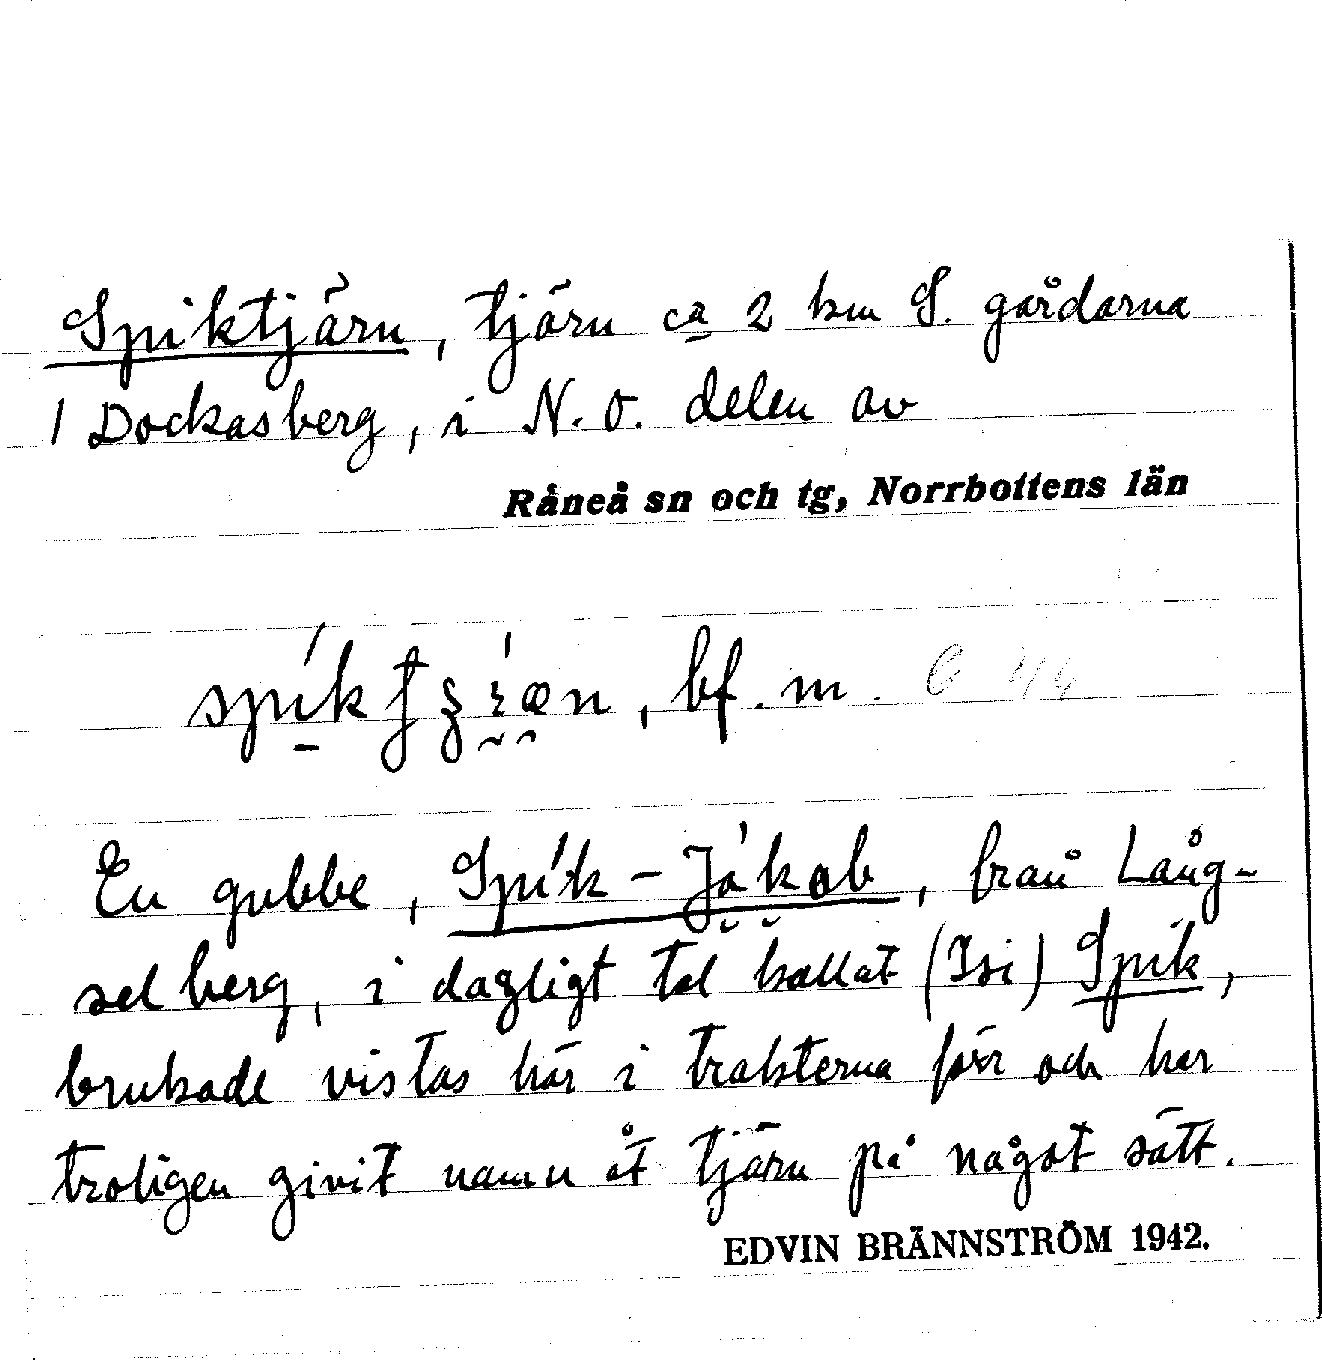 Spiktjärn, tjärn ca 2 km S. gårdarna
i Dockasberg, i N.O. delen av
Råneå sn och tg, Norrbottens län
, bf. m.
En gubbe, Spík-Jákob, från Lång-
selberg, i dagligt tal kallat (Isi) Spik,
brukade vistas här i trakterna förr och har
troligen givit namn åt tjärn på något sätt.
EDVIN BRÄNNSTRÖM 1942.